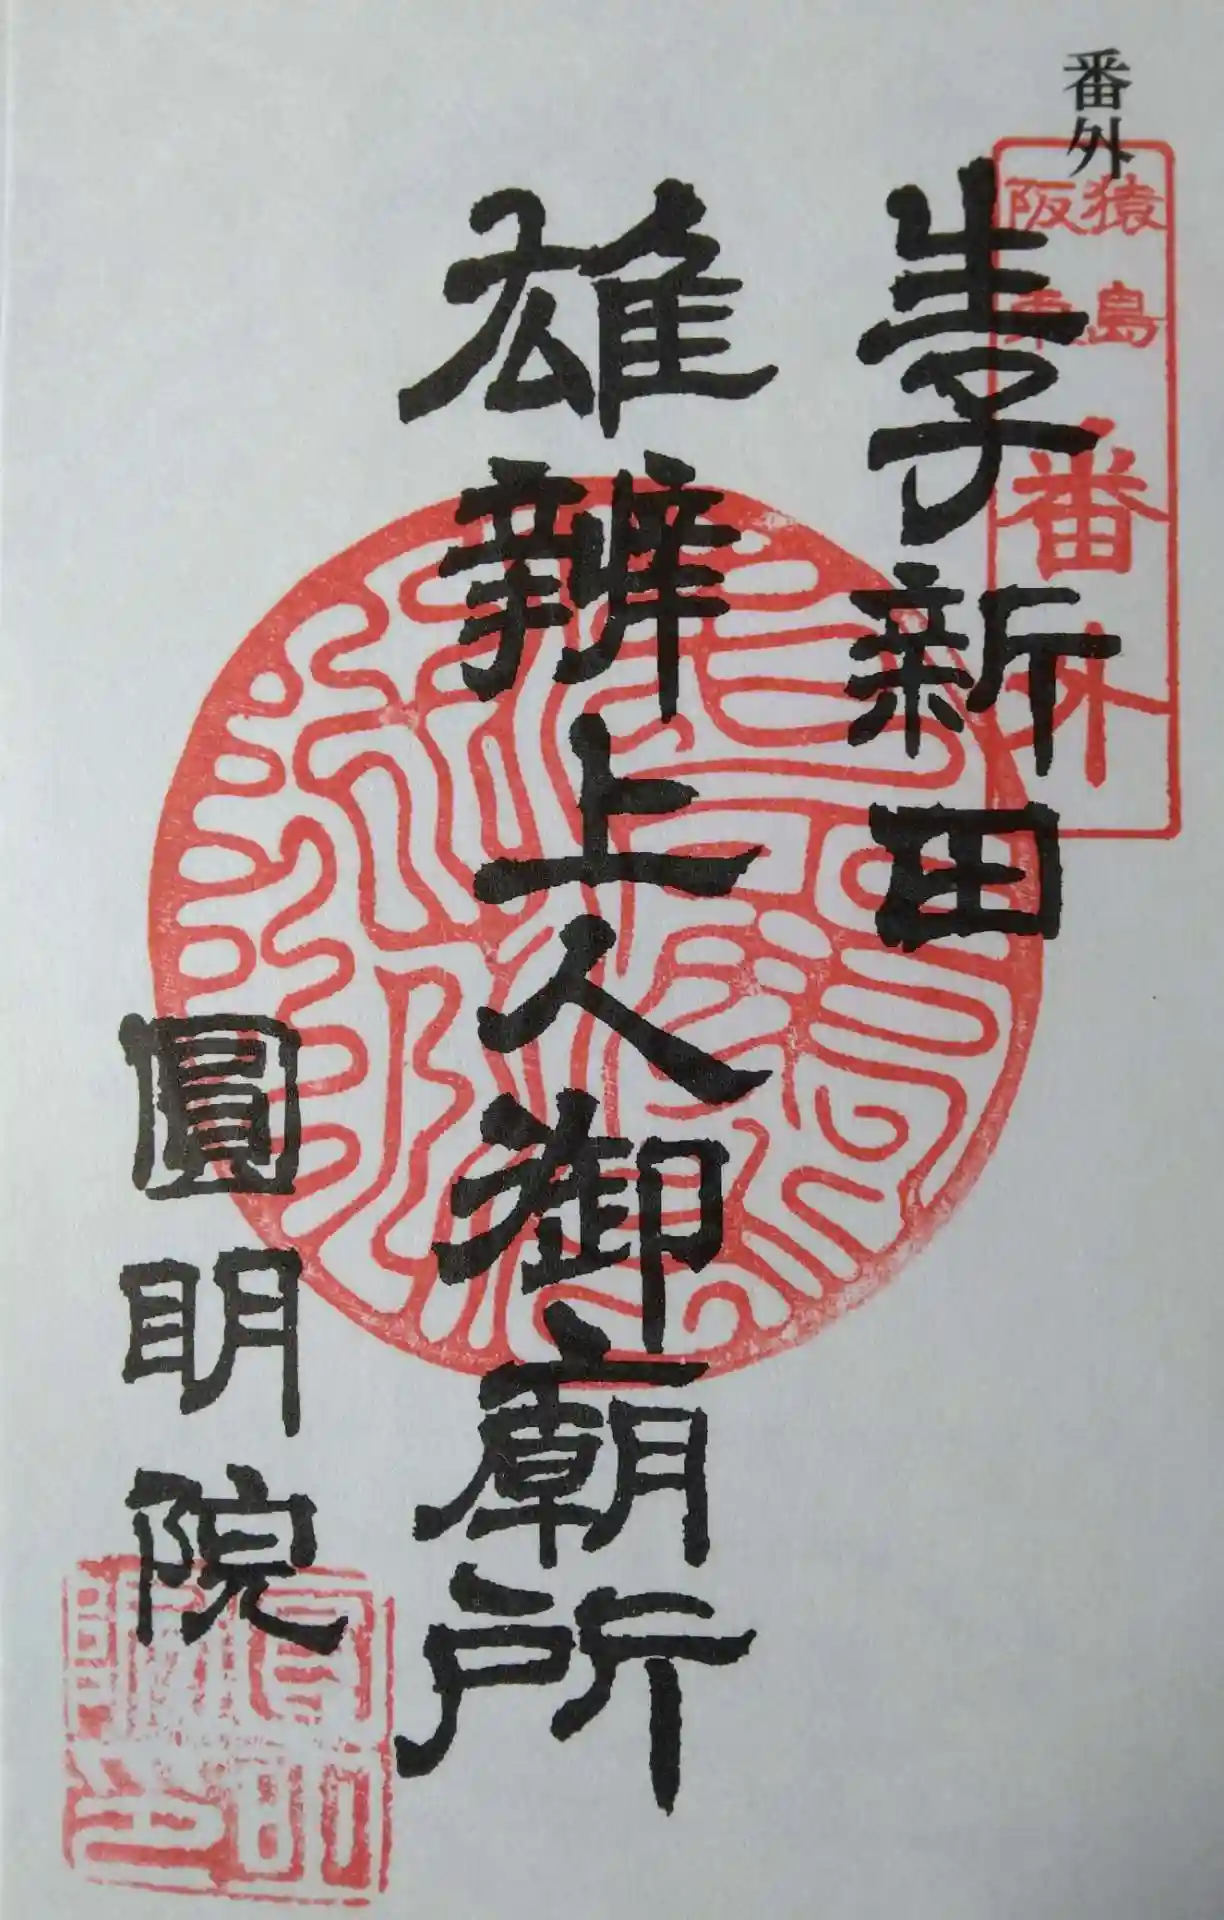 番外
猿島
阪東
番外
生子新田
雄辨上人御廟所
圓明院